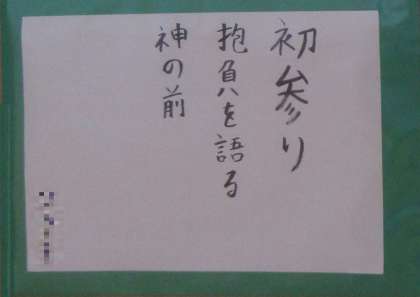 初参り
抱負を語る
神の前